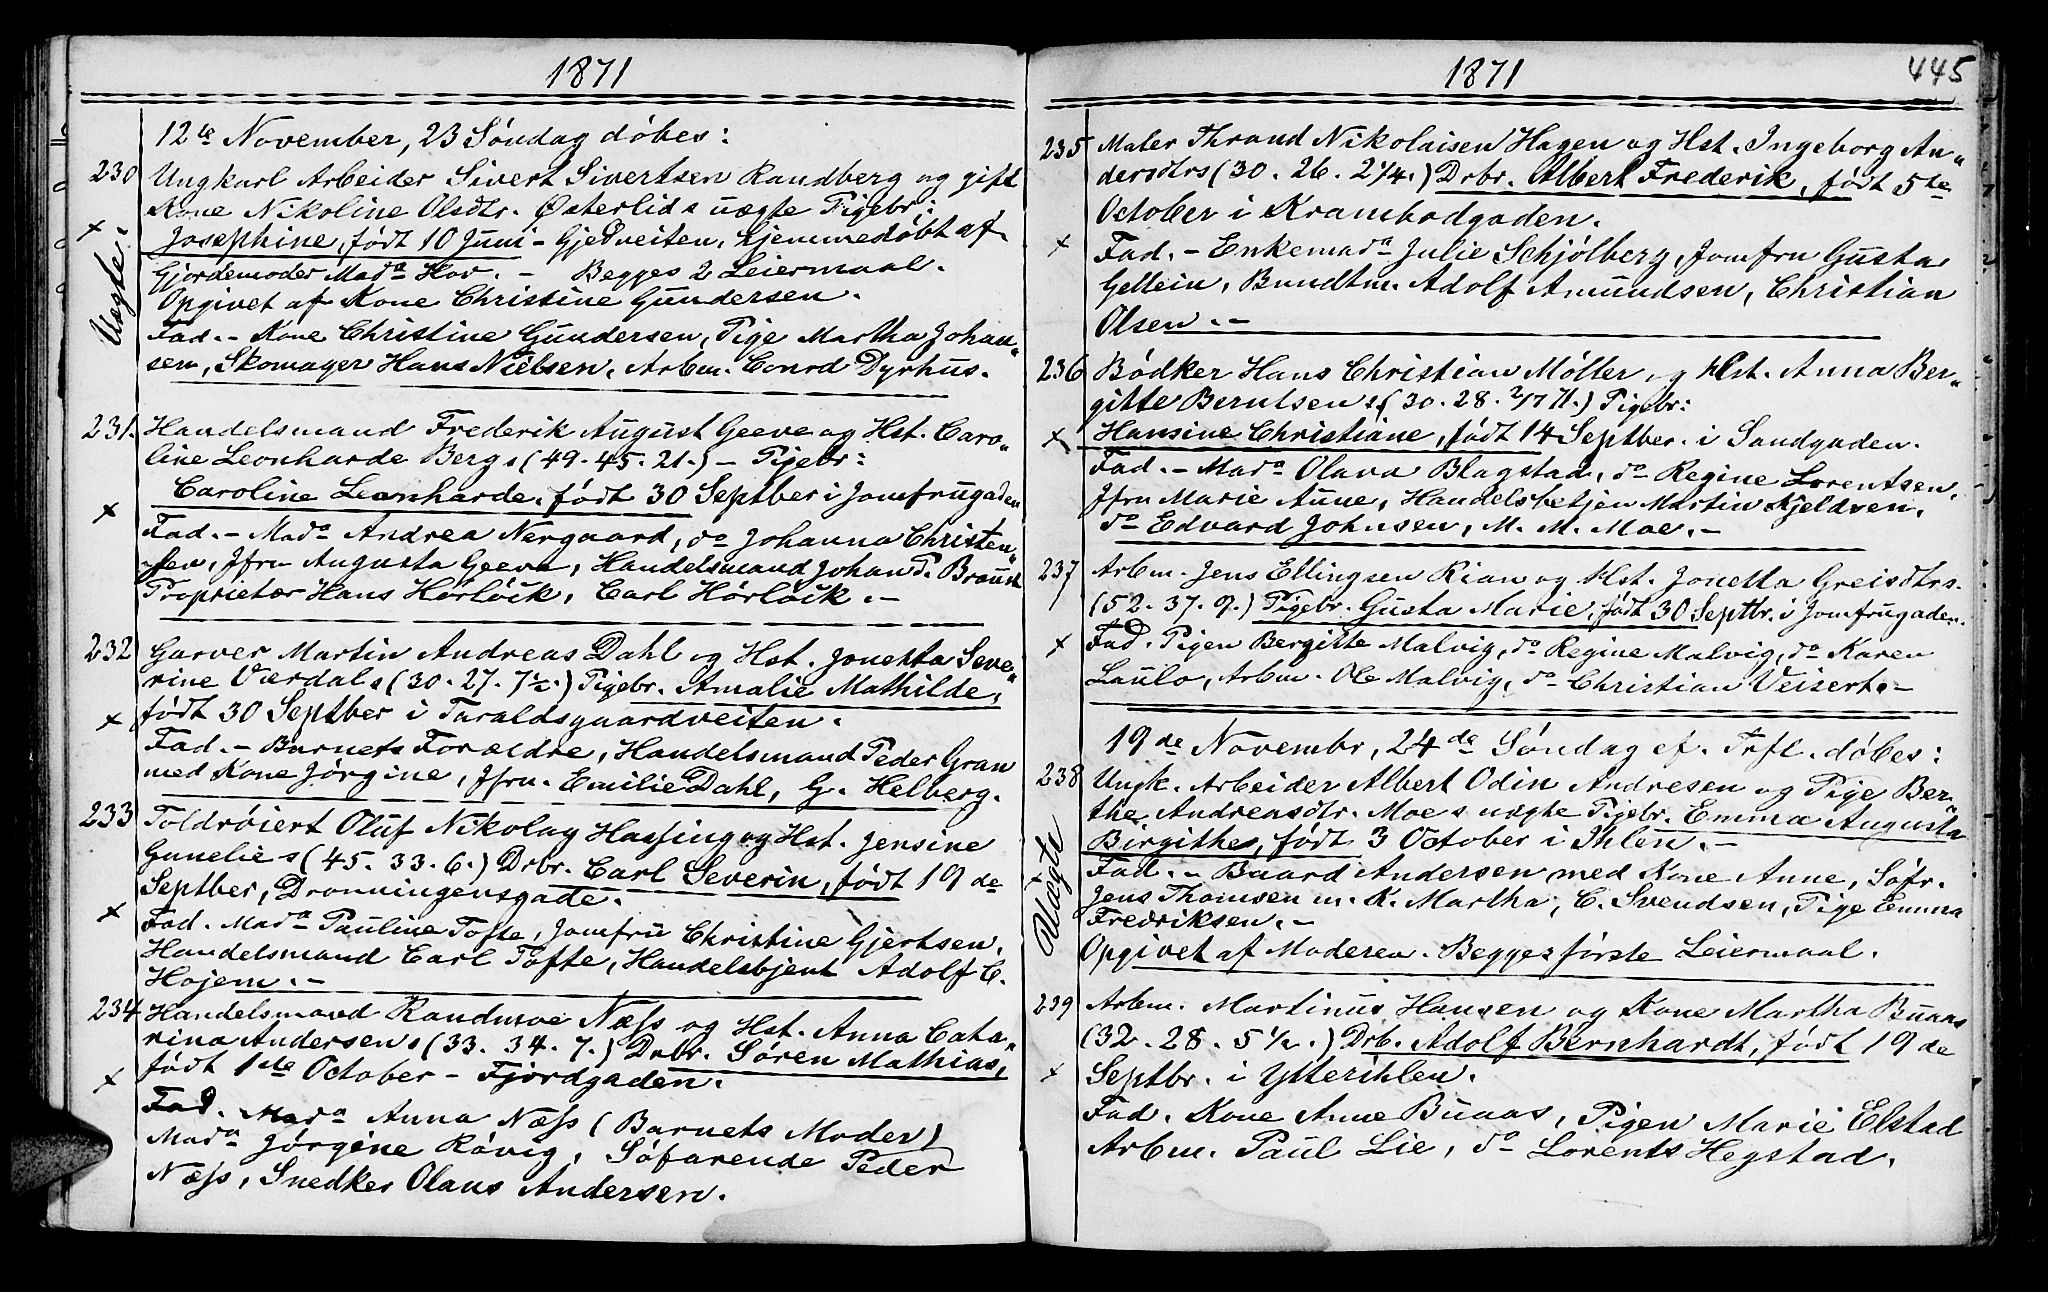 1871
12te November, 23 Søndag døbes:
230 Ungkarl Arbeider Sivert Sivertsen Randberg og gift
Kone Nikoline Olsdtr. Østerlids uægte Pigebr:
x Josephine, født 10 Juni - Gjedveiten, hjemmedøbt af
Uægte.
Gjordemoder Mada Hov. - Begges 2 Leiermaal.
Opgivet af Kone Christine Gundersen.
Fad. - Kone Christine Gundersen, Pige Martha Johan„
sen, Skomager Hans Nielsen, Arbm. Conrd Dyrhus.
231. Handelsmand Frederik August Geeve og Hst. Caro„
line Leonharde Bergs (49. 45. 21.) - Pigebr:
Caroline Leonharde, født 30 Septber i Jomfrugaden
x Fad. - Mada Andrea Nergaard, do Johanna Christen„
sen, Jfru Augusta Geeve, Handelsmand Johan P. Braun
Proprietær Hans Hørløck, Carl Hørløck. -
232 Garver Martin Andreas Dahl og Hst. Jonetta Seve„
rine Værdals (30. 27. 7½.) Pigebr. Amalie Mathilde,
x født 30 Septber i Taraldsgaardveiten.
Fad. - Barnets Forældre, Handelsmand Peder Gran
med Kone Jørgine, Jfru. Emilie Dahl, G. Helberg.
233 Toldrøiert Oluf Nikolay Hassing og Hst. Jensine
Gunelies (45. 33. 6.) Drbr. Carl Severin, født 19de
Septber, Dronningensgade.
x Fad. Mada Pauline Tofte, Jomfru Christine Gjertsen,
Handelsmand Carl Tofte, Handelsbjent Adolf C.
Hojem. -
234 Handelsmand Randmoe Næss og Hst. Anna Catha„
rina Andersens (33. 34. 7.) Drbr. Søren Mathias,
x født 1ste October - Fjordgaden.
Fad. Mada Anna Næss (Barnets Moder)
Mada Jørgine Røvig, Søfarende Peder
Næss, Snedker Olaus Andersen.
1871
445
235 Maler Thrand Nikolaisen Hagen og Hst. Ingeborg An„
dersdtrs (30. 26. 2¼.) Drbr. Albert Frederik, født 5te
October i Krambodgaden.
x Fad. - Enkemada Julie Schjølberg, Jomfru Gusta
Gellein, Bundtm. Adolf Amundsen, Christian
Olsen. -
236 Bødker Hans Christian Møller og Hst. Anna Ber„
gitte Berntsens (30. 28. 2/7 71.) Pigebr:
x Hansine Christiane, født 14 Septber. i Sandgaden.
Fad. - Mada Olava Blagstad, do Regine Lorentsen,
Jfru Marie Aune, Handelsbetjen Martin Kjeldsen,
do Edvard Johnsen, M. M. Moe. -
237 Arbm. Jens Ellingsen Rian og Hst. Jonetta Greisdtrs.
(52. 37. 9.) Pigebr. Gusta Marie, født 30 Septbr. i Jomfrugaden.
x Fad. Pigen Bergitte Malvig, do Regine Malvig, do Karen
Laulo, Arbm. Ole Malvig, do Christian Veisert. -
19de Novembr, 24de Søndag ef. Trft. døbes:
238 Ungk. Arbeider Albert Odin Andresen og Pige Ber„
the Andreasdtr. Moes uægte Pigebr. Emma Augusta
Birgithe, født 3 October i Ihlen. -
x Uægte
Fad. - Baard Andersen med Kone Anne, Søfr.
Jens Thomsen m. K. Martha, C. Svendsen, Pige Emma
Fredriksen. -
Opgivet af Moderen. Begges første Leiermaal.
239 Arbm. Martinus Hansen og Kone Martha Buaas
(32. 28. 5½.) Drb. Adolf Bernhardt, født 19de
x Septbr. i Ytterihlen.
Fad. Kone Anne Buaas, Pigen Marie Elstad
Arbm. Paul Lie, do Lorents Hegstad.